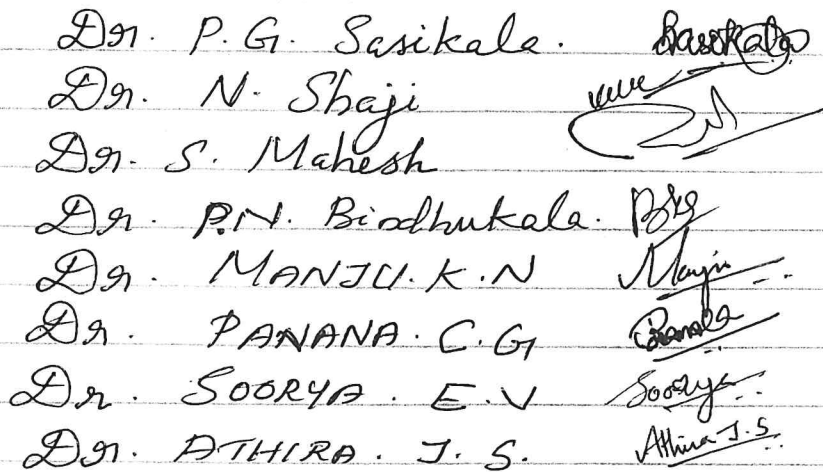 Dr. P. G. Sasikala. Sasikala
Dr. N. Shaji
Dr. S. Mahesh
Dr. P.N. Bindhukala.
Dr. MANJU. K. N Manju
Dr. PANANA. C. G
Dr. SOORYA. E. V Soorya
Dr. ATHIRA. J. S. Athira J. S